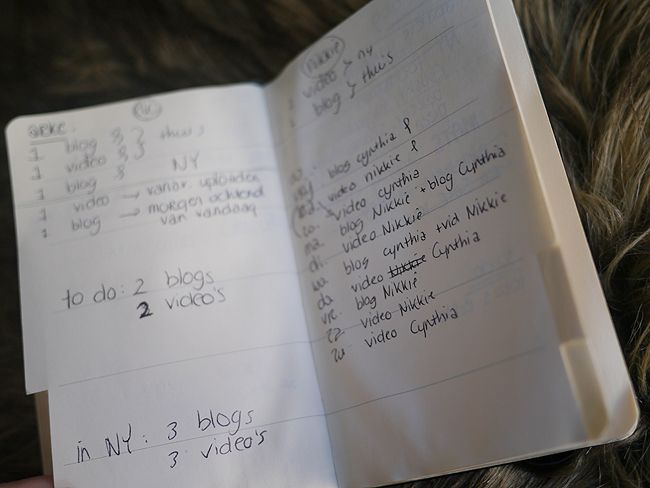 1 blog } thuis
1 video
1 blog NY
1 video → vanav. uploaden
1 blog → morgen ochtend
van vandaag
to do: 2 blogs
2 video's
in NY: 3 blogs
3 video's
nikkie
video > ny
blog } thuis
blog cynthia
video nikkie
video cynthia
blog Nikkie + blog Cynthia
ma. video Nikkie
di. blog cynthia + vid Nikkie
wo video Nikkie Cynthia
do blog Nikkie
vrij video Nikkie
zo video Cynthia